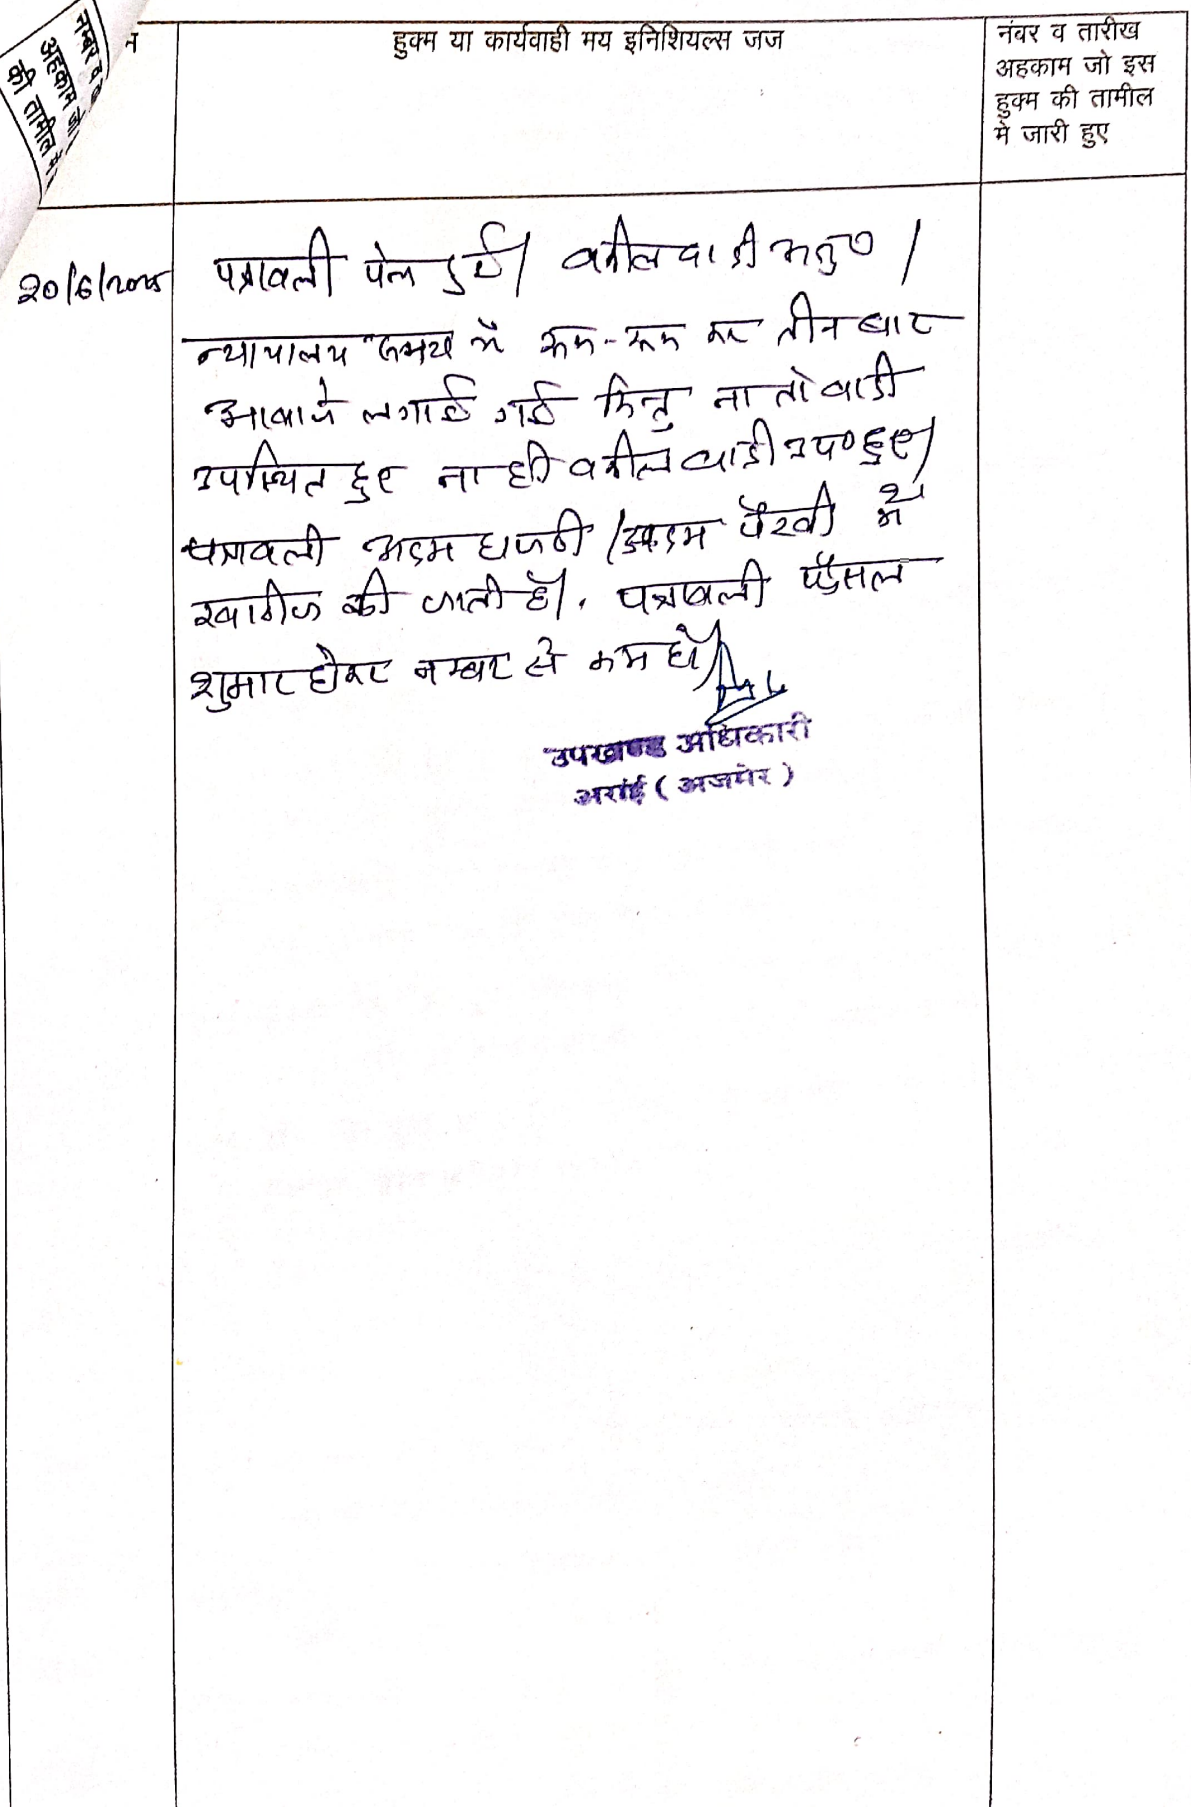 नम्बर व
अहकाम जो
की तामील में
न
हुक्म या कार्यवाही मय इनिशियल्स जज
नंवर व तारीख
अहकाम जो इस
हुक्म की तामील
मे जारी हुए
20/6/2025
पत्रावली पेश हुई। वकील वादी अनु० ।
न्यायालय समय में रूक-रूक कर तीन बार
आवाजे लगाई गई किन्तु ना तो वादी
उपस्थित हुए ना ही वकील वादी उप० हुए।
पत्रावली अदम हाजरी / अदम पैरवी में
खारीज की जाती है। पत्रावली फैसल
शुमार होकर नम्बर से कम हो।
उपखण्ड अधिकारी
अरांई ( अजमेर )